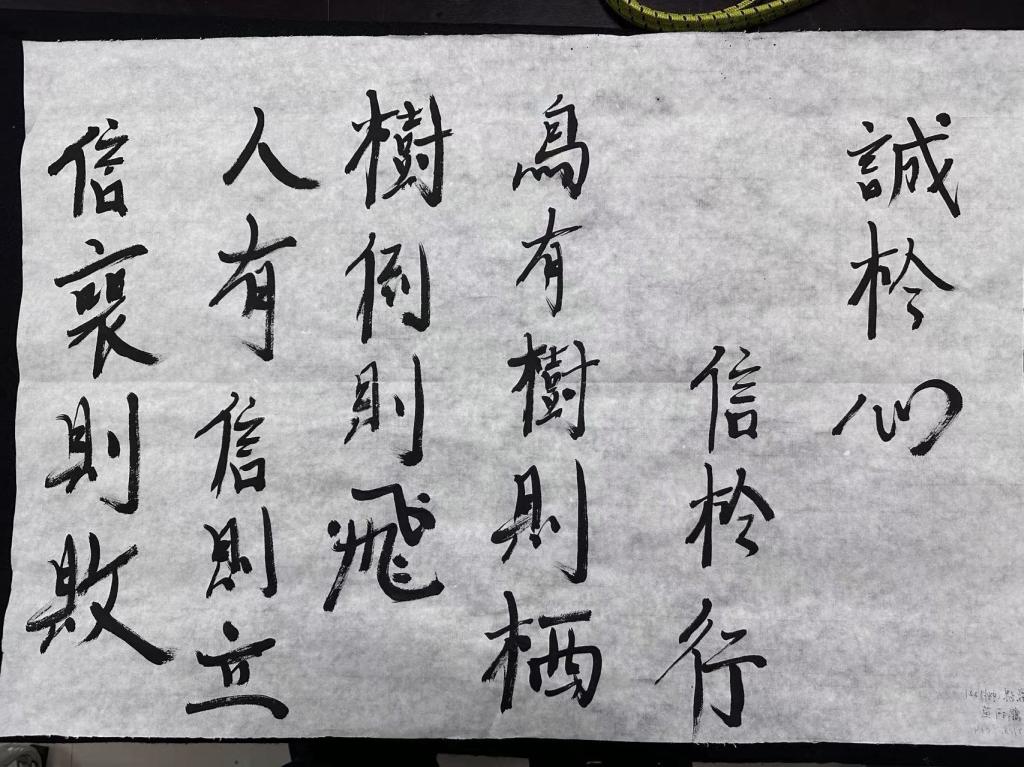 誠於心
信於行
鳥有樹則栖
樹倒則飛
人有信則立
信衰則敗